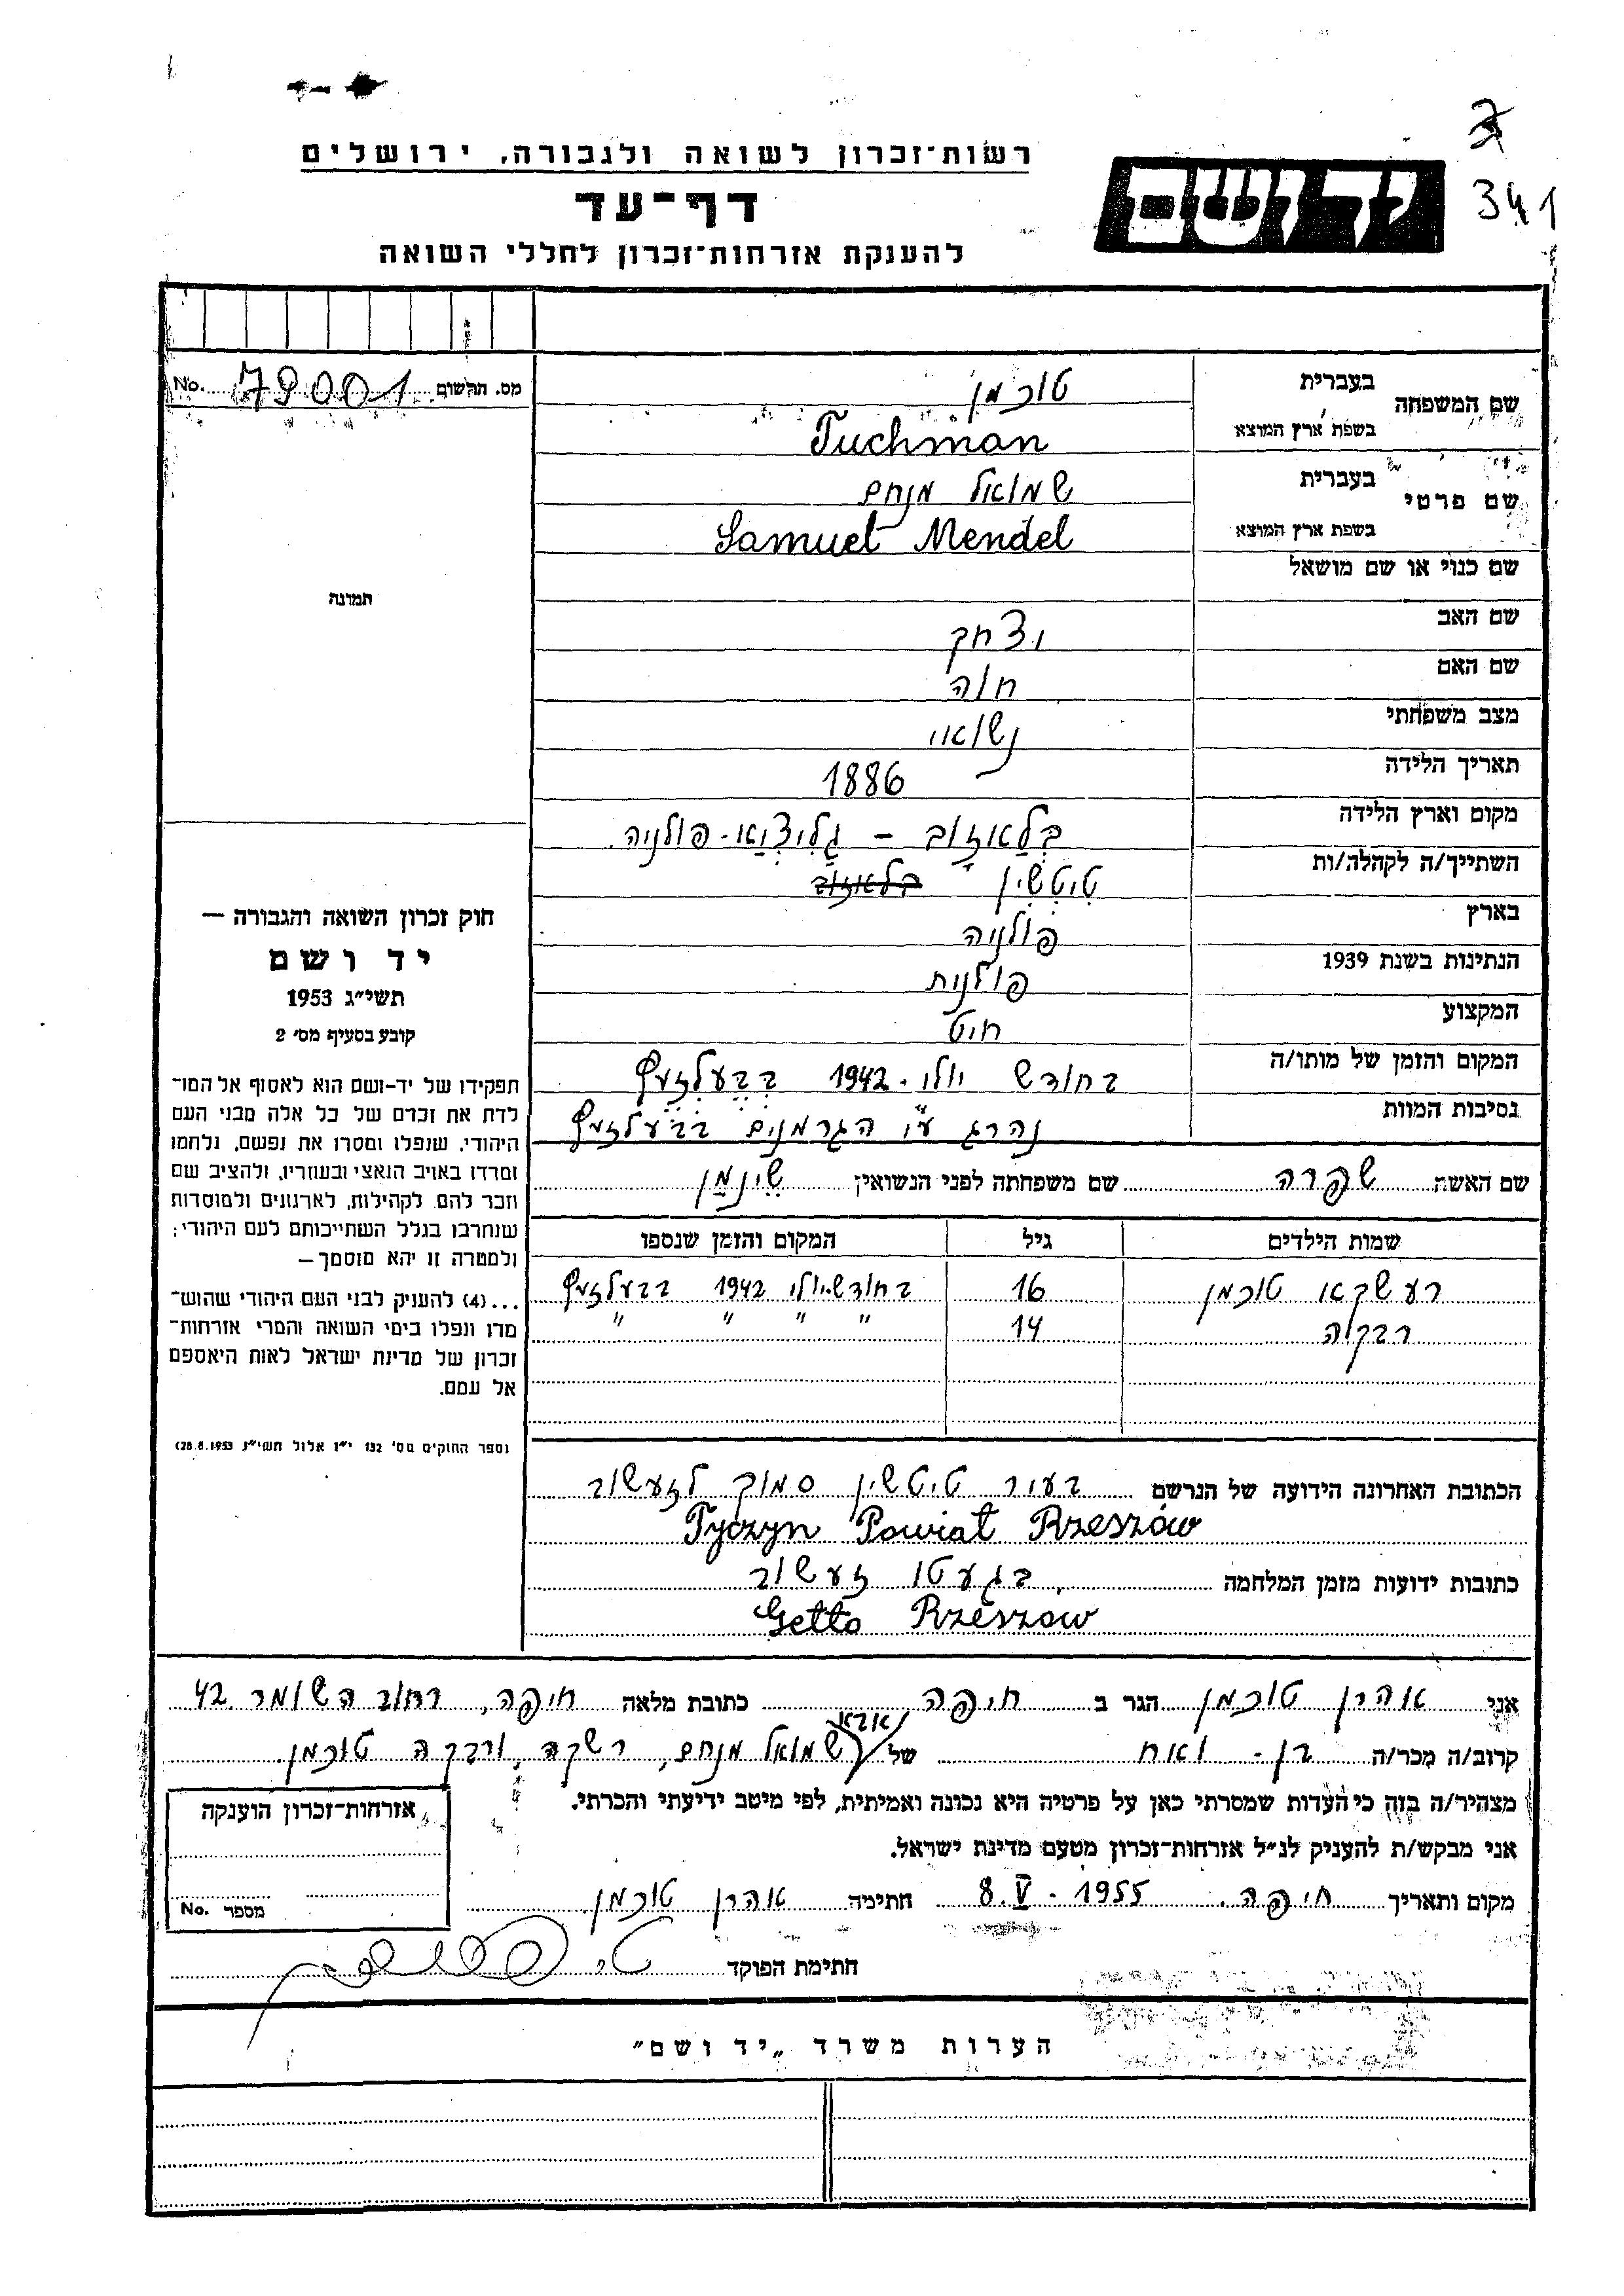 רשות־זכרון לשואה ולגבורה, ירושלים
דף־עד
להענקת אזרחות־זכרון לחללי השואה
יד ושם
341
מס. תרשום 79001 No.
שם המשפחה
בעברית טוכמן
בשפת ארץ המוצא Tuchman
שם פרטי
בעברית שמואל מנחם
בשפת ארץ המוצא Samuel Mendel
שם כנוי או שם מושאל
שם האב יצחק
שם האם חוה
מצב משפחתי נשואי
תאריך הלידה 1886
מקום וארץ הלידה בְלַאזוֹב – גָלִיצְיַא - פולניה
השתייך/ה לקהלה/ות טיטשין בלאזוב
בארץ פולניה
הנתינות בשנת 1939 פולנית
המקצוע חיט
המקום והזמן של מותו/ה בחודש יולי - 1942 בבעלזעץ
נסיבות המוות נהרג ע"י הגרמנים בבעלזעץ
שם האשה שפרה שם משפחתה לפני הנשואין שינמן
שמות הילדים גיל המקום והזמן שנספו
רעשקא טוכמן 16 בחודש יולי 1942 בבעלזעץ
רבקה 14 " " " "
הכתובת האחרונה הידועה של הנרשם בעיר טיטשין סמוך לזעשוב
Tyczyn Powiat Rzeszów
כתובות ידועות מזמן המלחמה בגעטו זעשוב
Getto Rzeszów
תמונה
חוק זכרון השואה והגבורה —
יד ושם
תשי"ג 1953
קובע בסעיף מס' 2
תפקידו של יד-ושם הוא לאסוף אל המו־
לדת את זכרם של כל אלה מבני העם
היהודי, שנפלו ומסרו את נפשם, נלחמו
ומרדו באויב הנאצי ובעוזריו, ולהציב שם
וזכר להם, לקהילות, לארגונים ולמוסדות
שנחרבו בגלל השתייכותם לעם היהודי;
ולמטרה זו יהא מוסמך —
...(4) להעניק לבני העם היהודי שהוש־
מדו ונפלו בימי השואה והמרי אזרחות־
זכרון של מדינת ישראל לאות היאספם
אל עמם.
(ספר החוקים מס' 132 י"ז אלול תשי"ג 28.8.1953)
אני אהרן טוכמן הגר ב חיפה כתובת מלאה חיפה, רחוב השומר 42
אבא
קרוב/ה מכר/ה בן - ואח של שמואל מנחם, רשקה, ורבקה טוכמן
מצהיר/ה בזה כי העדות שמסרתי כאן על פרטיה היא נכונה ואמיתית, לפי מיטב ידיעתי והכרתי.
אני מבקש/ת להעניק לנ"ל אזרחות־זכרון מטעם מדינת ישראל.
מקום ותאריך חיפה 8.V - 1955 חתימה אהרן טוכמן
חתימת הפוקד
אזרחות־זכרון הוענקה
מספר No.
הערות משרד „יד ושם"